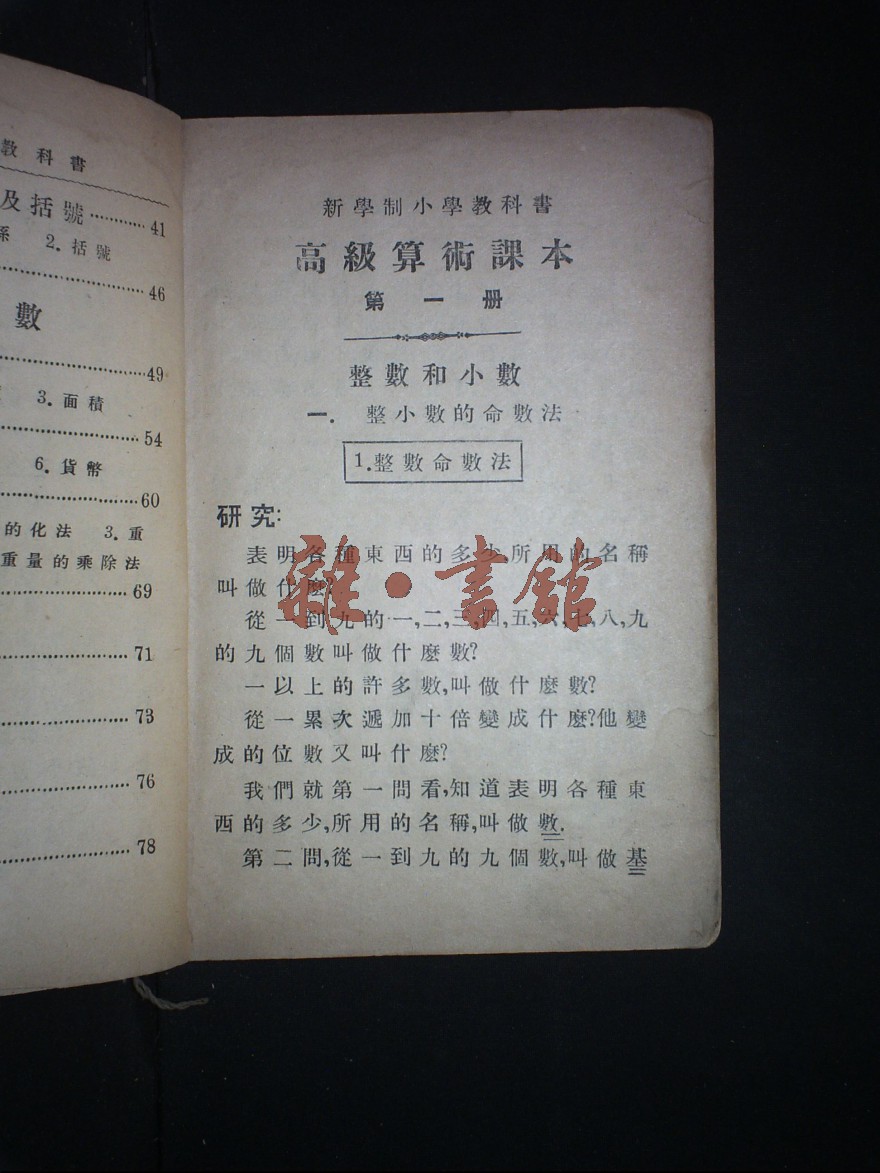 教科書
及括號…………41
系 2.括號
…………46
數
…………49
3.面積
…………54
6.貨幣
…………60
的化法 3.重
重量的乘除法
…………69
…………71
…………73
…………76
…………78
新學制小學教科書
高級算術課本
第一册
整數和小數
一. 整小數的命數法
1.整數命數法
研究:
表明各種東西的多少,所用的名稱
叫做什麽?
從一到九的一,二,三,四,五,六,七,八,九
的九個數叫做什麽數?
一以上的許多數,叫做什麽數?
從一累次遞加十倍變成什麽?他變
成的位數又叫什麽?
我們就第一問看,知道表明各種東
西的多少,所用的名稱,叫做數.
第二問,從一到九的九個數,叫做基
雜·書館